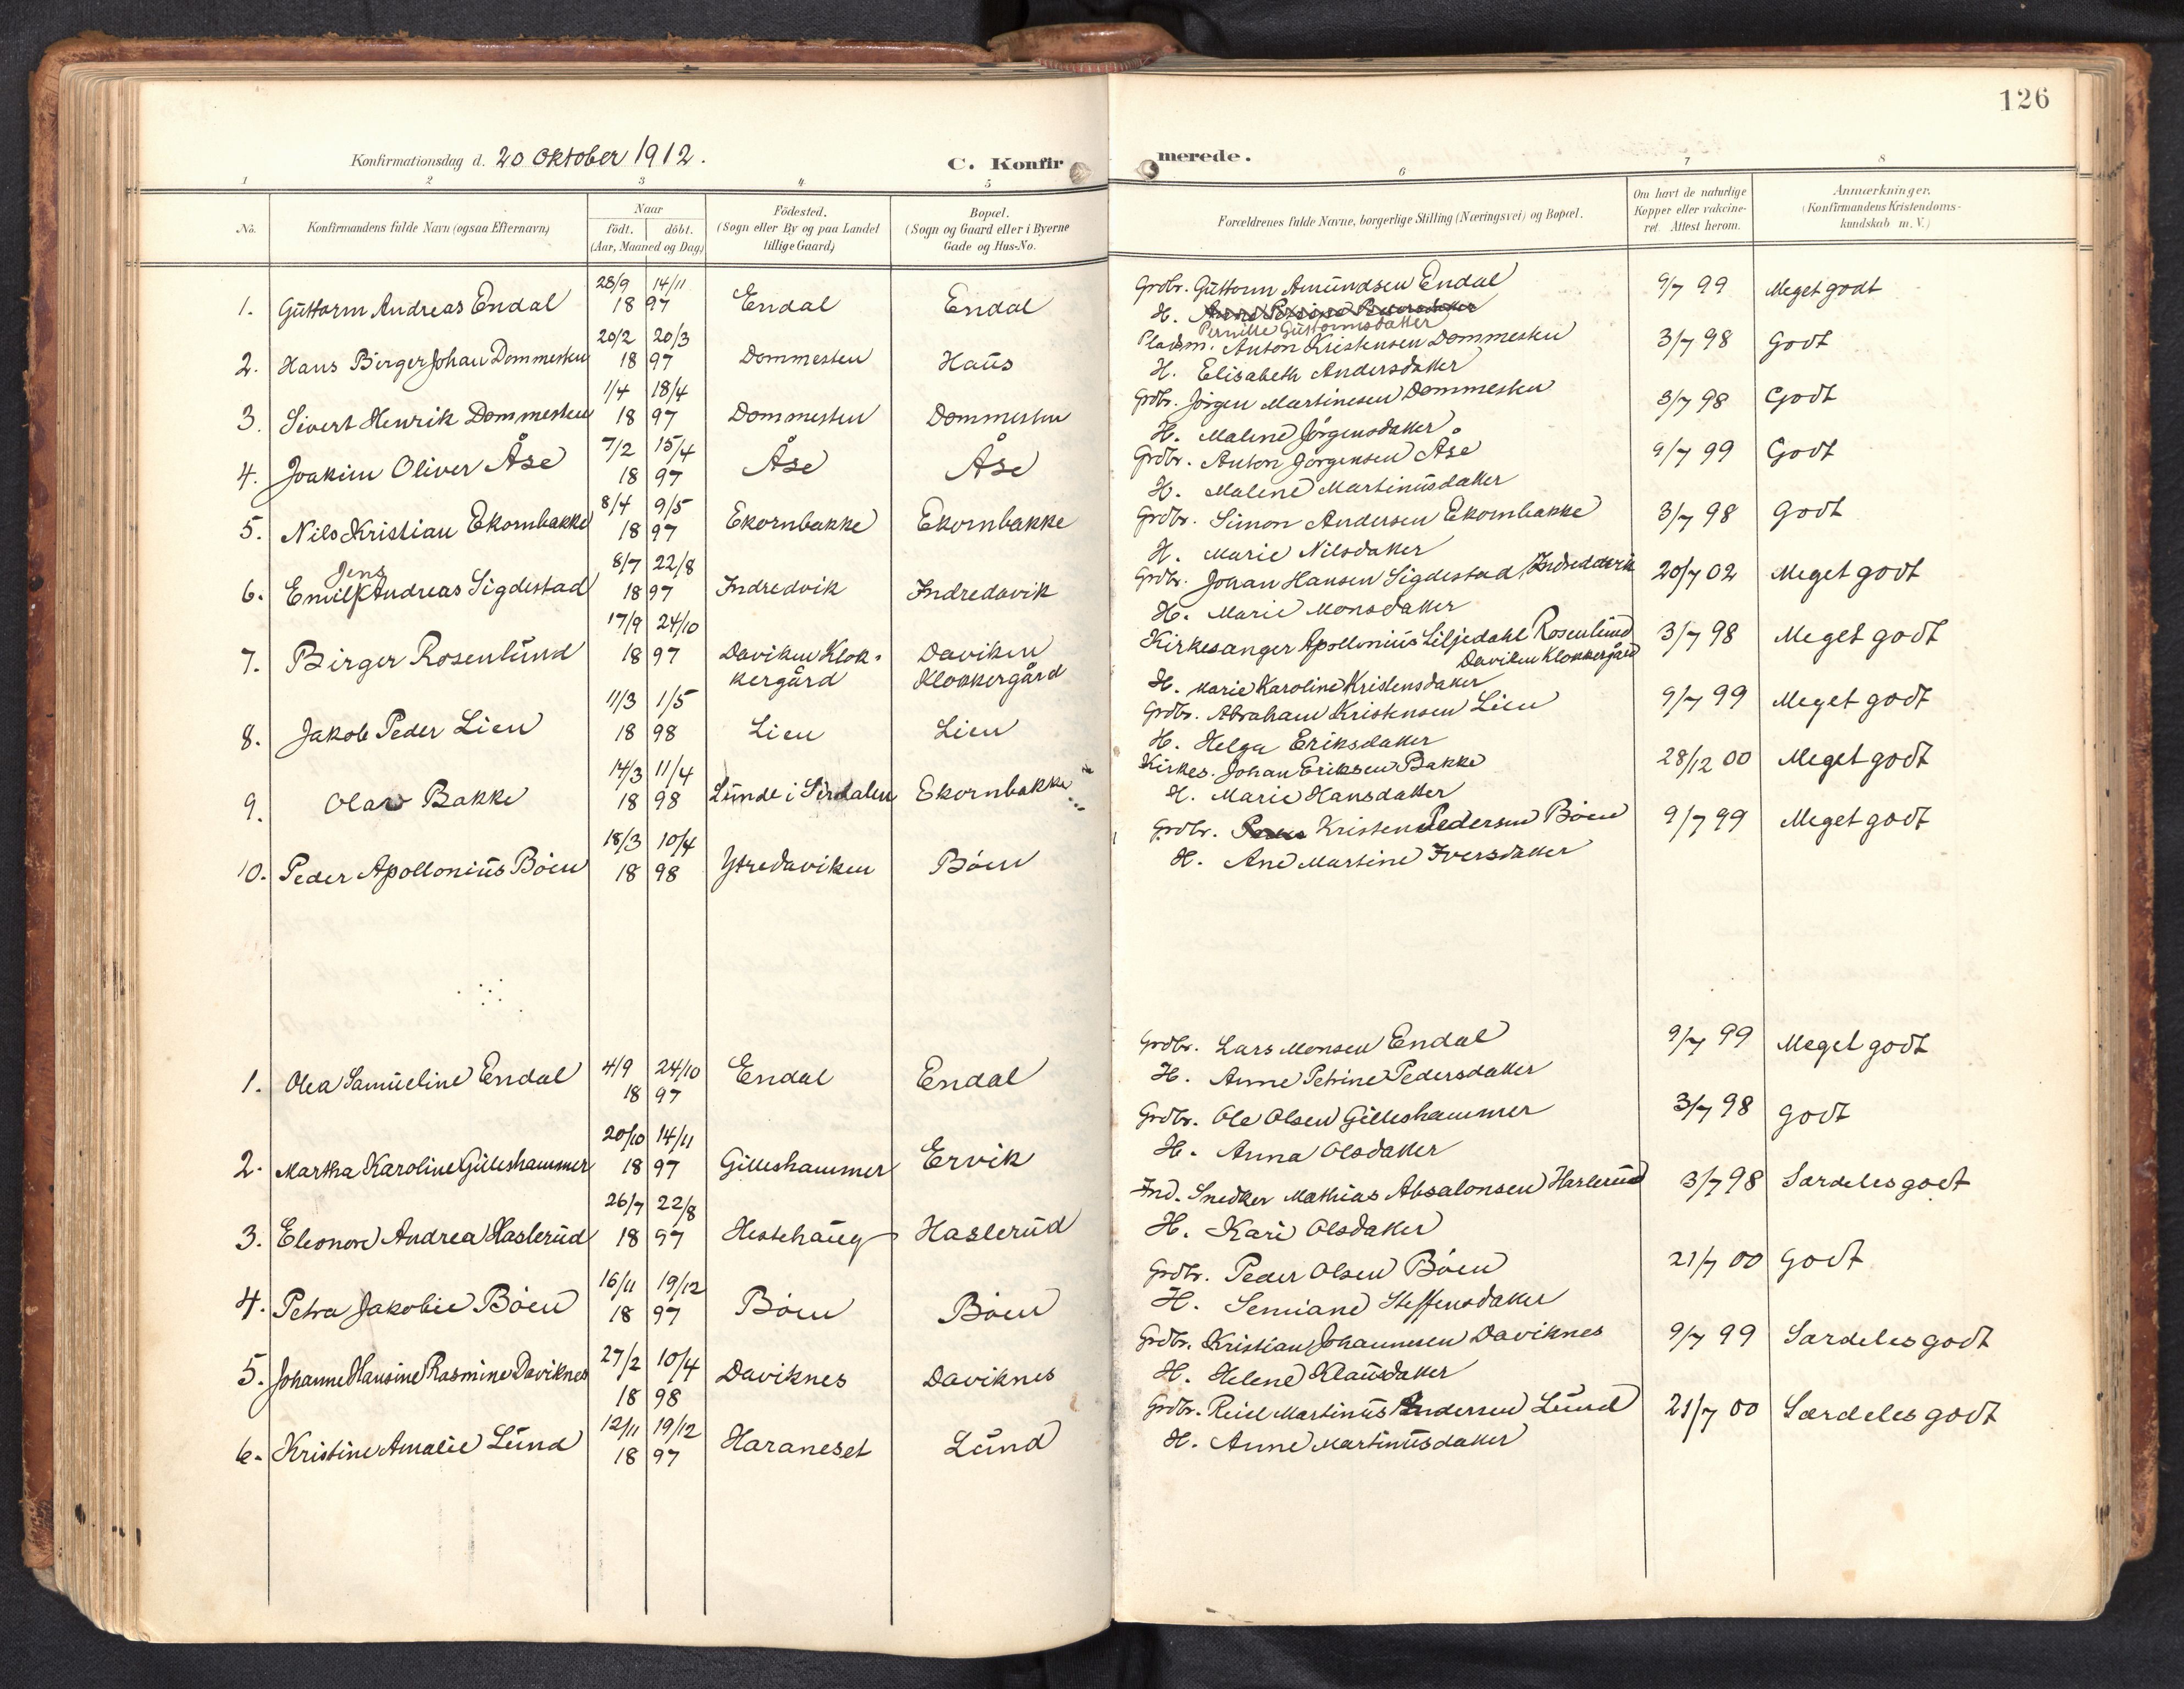 126
Konfirmationsdag d. 20 Oktober 1912.
C. Konfirmerede.
1 2 3 4 5 6 7 8
No.
Konfirmandens fulde Navn (ogsaa Efternavn)
Naar
födt. döbt.
(Aar, Maaned og Dag)
Födested.
(Sogn eller By og paa Landet
tillige Gaard)
Bopæl.
(Sogn og Gaard eller i Byerne
Gade og Hus-No.
Forældrenes fulde Navne, borgerlige Stilling (Næringsvei) og Bopæl.
Om havt de naturlige
Kopper eller vakcine-
ret. Attest herom.
Anmærkninger.
(Konfirmandens Kristendoms-
kundskab m. V.)
1. Guttorm Andreas Endal 28/9 1897 14/11 Endal Endal Grdbr. Guttorm Amundsen Endal 9/7 99 Meget godt
H. Anne Petrine Pedersdatter
Pernille Guttormsdatter
2. Hans Birger Johan Dommesten 20/2 1897 20/3 Dommesten Haus Pladsm. Anton Kristensen Dommesten 3/7 98 Godt
H. Elisabeth Andersdatter
3. Sivert Henrik Dommesten 1/4 1897 18/4 Dommesten Dommesten Grdbr. Jörgen Martinesen Dommesten 3/7 98 Godt
H. Malene Jörgensdatter
4. Joakim Oliver Åse 7/2 1897 15/4 Åse Åse Grdbr. Anton Jörgensen Åse 9/7 99 Godt
H. Malene Martinusdatter
5. Nils Kristian Ekornbakke 8/4 1897 9/5 Ekornbakke Ekornbakke Grdbr. Simon Andersen Ekornbakke 3/7 98 Godt
H. Marie Nilsdatter
Jens
6. Emil Andreas Sigdestad 8/7 1897 22/8 Indredvik Indredavik Grdbr. Johan Hansen Sigdestad, 20/7 02 Meget godt
H. Marie Monsdatter
7. Birger Rosenlund 17/9 1897 24/10 Daviken Klok- Daviken Kirkesanger Apollonius Liljedahl Rosenlund 3/7 98 Meget godt
kergård Klokkergård Daviken Klokkergård
H. Marie Karoline Kristensdatter
8. Jakob Peder Lien 11/3 1898 1/5 Lien Lien Grdbr. Abraham Kristensen Lien 9/7 99 Meget godt
H. Helga Eriksdatter
9. Olav Bakke 14/3 1898 11/4 Lunde i Sirdalen Ekornbakke Kirkes. Johan Eriksen Bakke 28/12 00 Meget godt
H. Marie Hansdatter
10. Peder Apollonius Böen 18/3 1898 10/4 Ytredaviken Böen Grdbr. Kristen Pedersen Böen 9/7 99 Meget godt
H. Ane Martine Iversdatter
1. Olea Samueline Endal 4/9 1897 24/10 Endal Endal Grdbr. Lars Monsen Endal 9/7 99 Meget godt
H. Anne Petrine Pedersdatter
2. Martha Karoline Gilleshammer 20/10 1897 14/11 Gilleshammer Ervik Grdbr. Ole Olsen Gilleshammer 3/7 98 godt
H. Anna Olsdatter
3. Eleonore Andrea Haslerud 26/7 1897 22/8 Hestehaug Haslerud Ind. Snedker Mathias Absalonsen Haslerud 3/7 98 Særdeles godt
H. Kari Olsdatter
4. Petra Jakobie Böen 16/11 1897 19/12 Böen Böen Grdbr. Peder Olsen Böen 21/7 00 Godt
H. Semiane Steffensdatter
5. Johanne Hansine Rasmine Daviknes 27/2 1898 10/4 Daviknes Daviknes Grdbr. Kristian Johannesen Daviknes 9/7 99 Særdeles godt
H. Helene Klausdatter
6. Kristine Amalie Lund 12/11 1897 19/12 Haraneset Lund Grdbr. Reiel Martinus Andersen Lund 21/7 00 Særdeles godt
H. Anne Martinusdatter